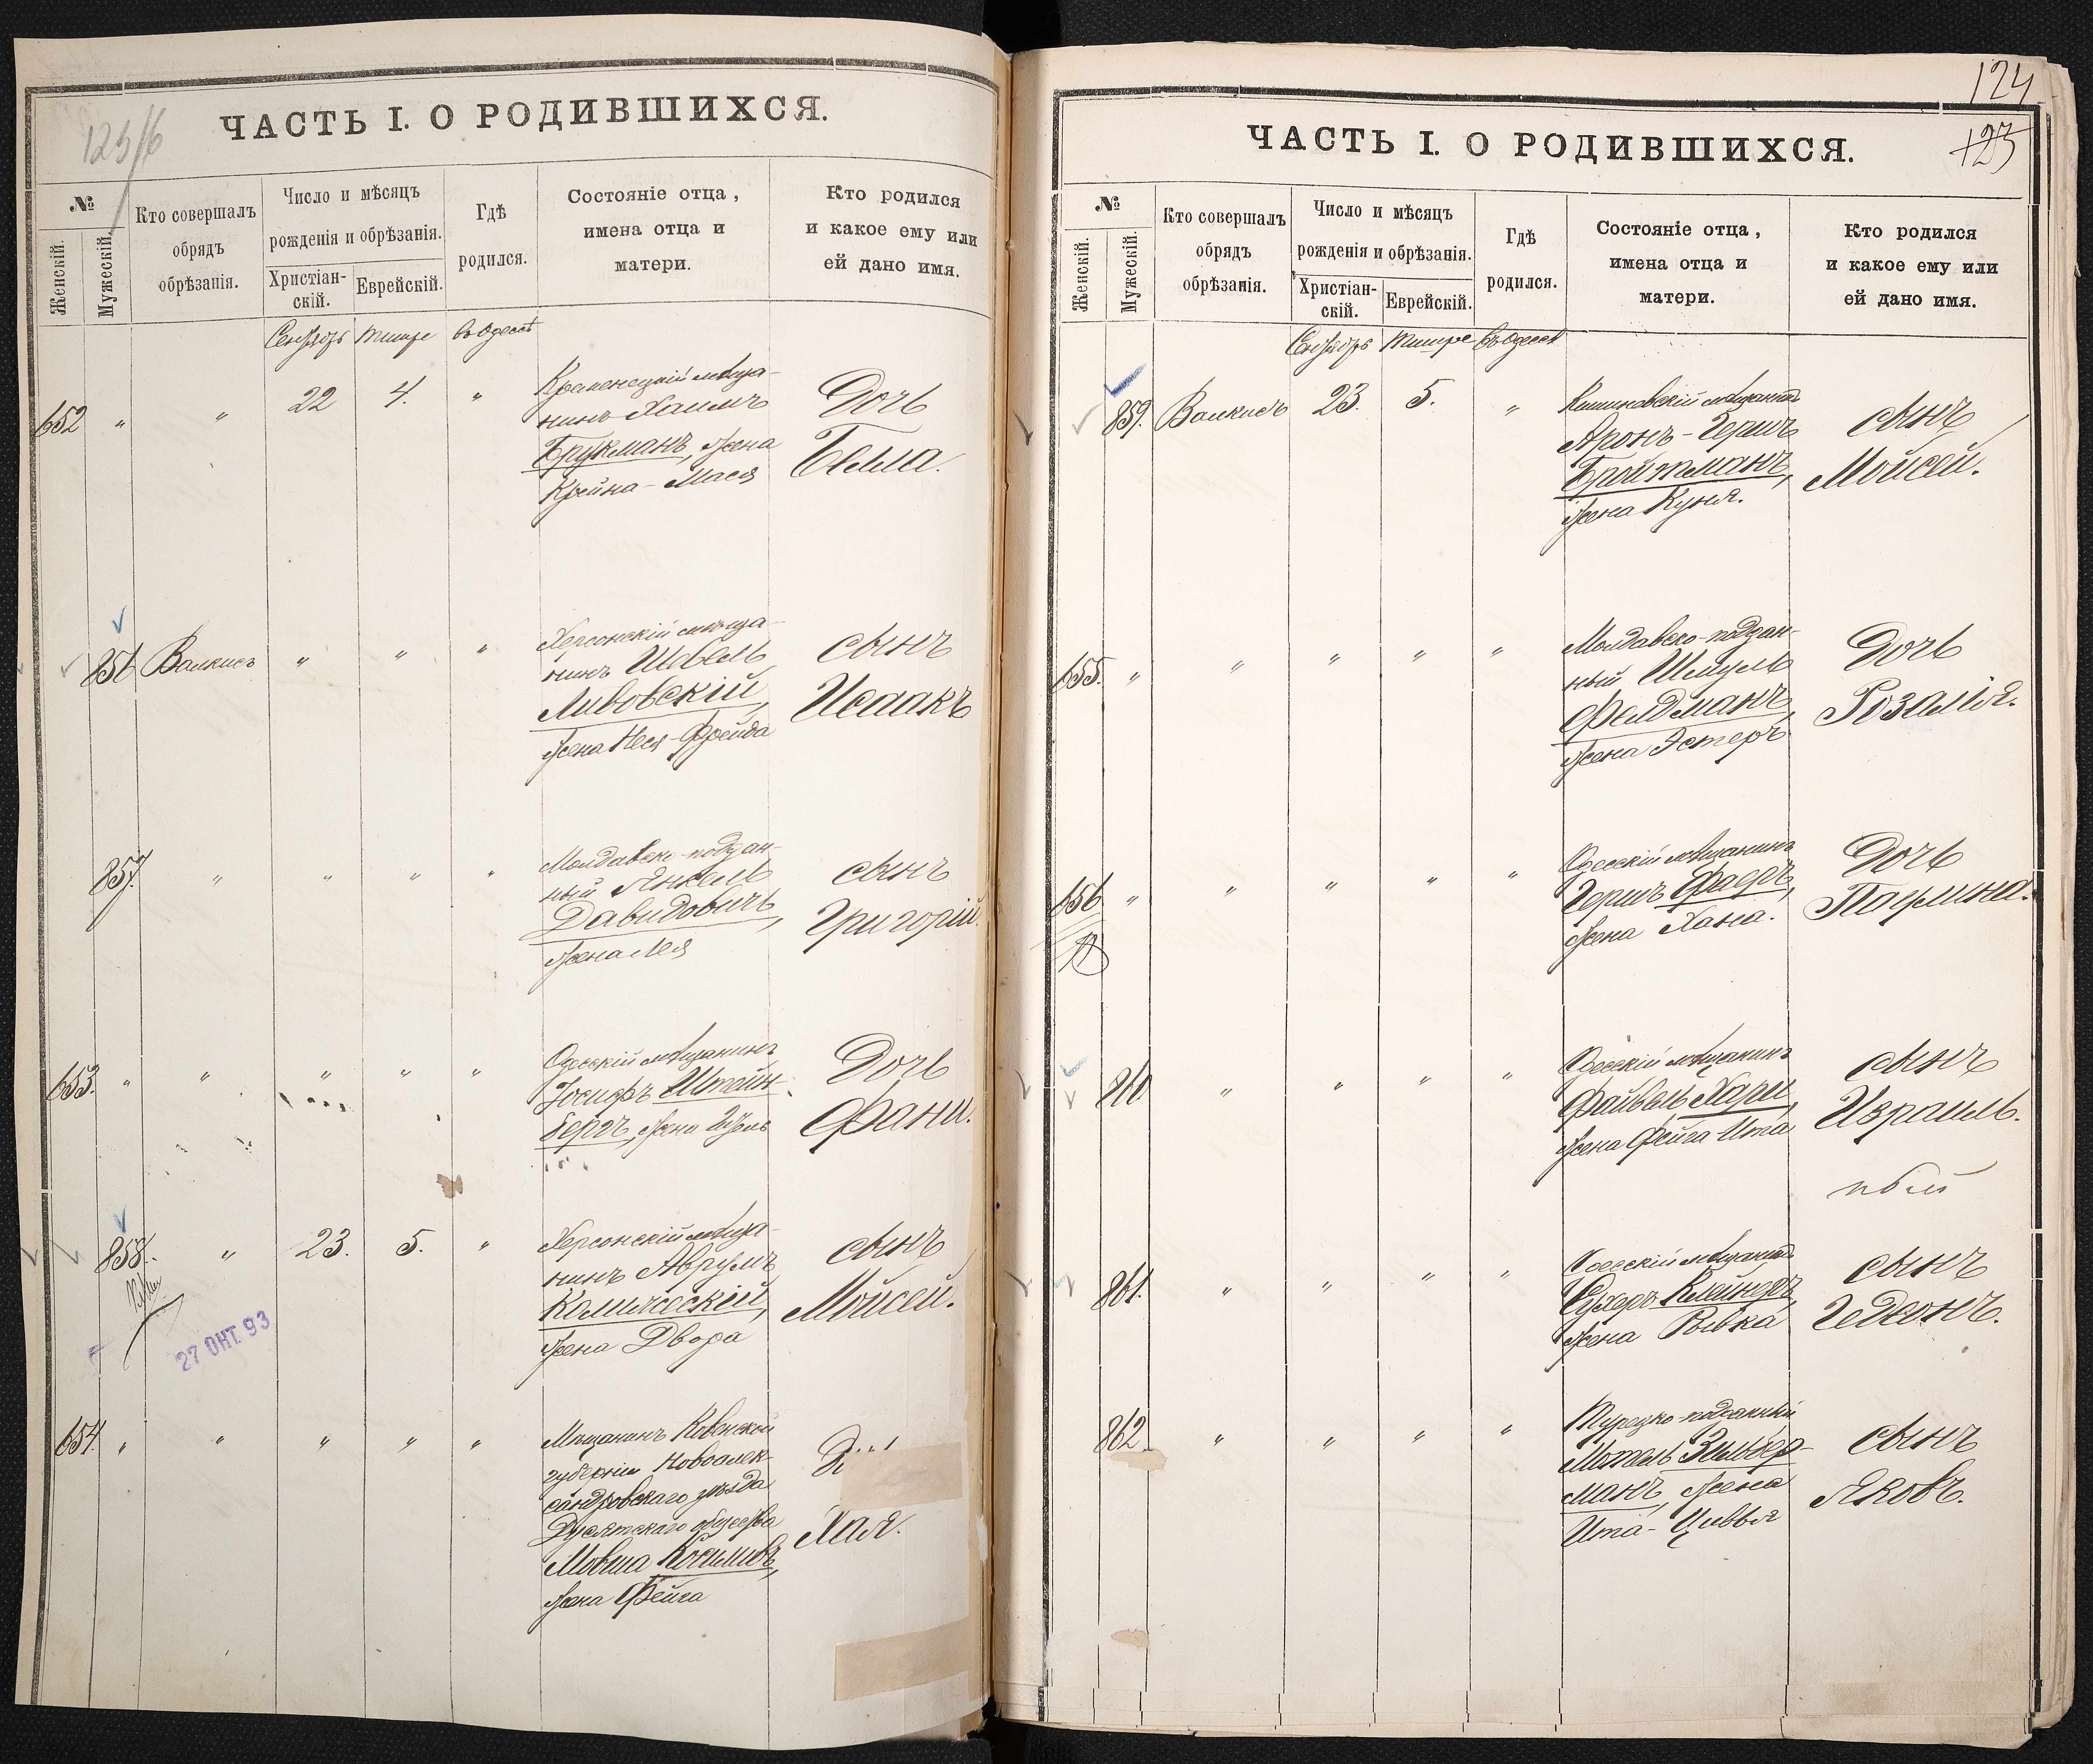 123/6
ЧАСТЬ I. О РОДИВШИХСЯ.
№
Женскій.
Мужескій.
Кто совершалъ
обрядъ
обрѣзанія.
Число и мѣсяцъ
рожденія и обрѣзанія.
Христіан-
скій.
Еврейскій.
Гдѣ
родился.
Состояніе отца,
имена отца и
матери.
Кто родился
и какое ему или
ей дано имя.
Сентябрь Тишре въ Одессѣ
652 " " 22 4. "
Кременецкій мѣща-
нинъ Хаимъ
Брукманъ, жена
Крейна-Мася
Дочь
Белла.
856 Валкисъ " " "
Херсонскій мѣща-
нинъ
Ливовскій,
жена Неся-Фрейда
сынъ
Исаакъ
857. " " " "
Молдавско-поддан-
ный Янкель
Давидовичъ,
жена Лея
сынъ
Григорій.
653. " " " " "
Одесскій мѣщанинъ
Іосифъ Штейн-
бергъ, жена
Дочь
Фани.
858. " 23. 5. "
Херсонскій мѣща-
нинъ Аврумъ
жена Двора
сынъ
Мойсей.
27 ОКТ. 93
654. " " " " "
Мѣщанинъ Ковенской
губерніи Новоалек-
сандровскаго уѣзда
Дусятскаго общества
Мовша
жена Фейга
Хая.
124
123
ЧАСТЬ I. О РОДИВШИХСЯ.
№
Женскій.
Мужескій.
Кто совершалъ
обрядъ
обрѣзанія.
Число и мѣсяцъ
рожденія и обрѣзанія.
Христіан-
скій.
Еврейскій.
Гдѣ
родился.
Состояніе отца,
имена отца и
матери.
Кто родился
и какое ему или
ей дано имя.
Сентябрь Тишре въ Одессѣ
859. Валкисъ 23. 5. "
Кишиневскій мѣщанинъ
Аронъ-Гершъ
Бройтманъ,
жена Куня.
сынъ
Мойсей.
655. " " " " "
Молдавско-поддан-
ный Шмуль
Фелдманъ,
жена Эстеръ
Дочь
Розалія.
656 " " " " "
Одесскій мѣщанинъ
Гершъ Фаеръ,
жена Хана.
Дочь
Паулина.
860 " " " "
Одесскій мѣщанинъ
Файвель Хари,
жена Фейга Ита
сынъ
Израиль.
861. " " " "
Одесскій мѣщанинъ
Сухеръ Клейнеръ,
жена Рывка
сынъ
Гедеонъ.
862 " " " "
Турецко-подданный
Мотель Зильбер-
манъ, жена
Ита-Цивья
сынъ
Яковъ.